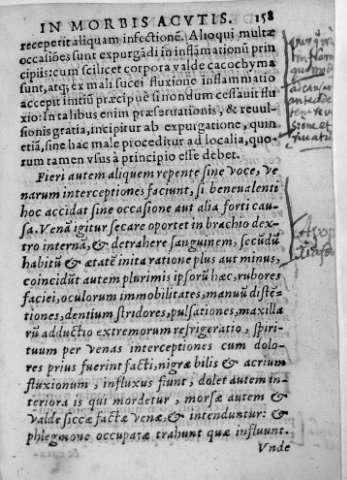 IN MORBIS ACVTIS. 158
receperit aliquam infectionē. Alioqui multæ
occasiões sunt expurgādi in inflāmationū prin
cipiis: cum scilicet corpora valde cacochyma
sunt, atq; ex mali succi fluxione inflammatio
accepit initiū præcipuè si nondum cessauit flu
xio: In talibus enim præseruationis, & reuul-
sionis gratia, incipitur ab expurgatione, quin
etiā, sine hac male proceditur ad localia, quo-
rum tamen vsus à principio esse debet.
Fieri autem aliquem repente sine voce, ve
narum interceptiones faciunt, si beneualenti
hoc accidat sine occasione aut alia forti cau-
sa. Venā igitur secare oportet in brachio dex
tro internā, & detrahere sanguinem, secūdū
habitū & ætatē inita ratione plus aut minus,
coincidūt autem plurimis ipsorū hæc, rubores
faciei, oculorum immobilitates, manuū distē-
tiones, dentium stridores, pulsationes, maxilla
rū adductio extremorum refrigeratio, spiri-
tuum per venas interceptiones cum dolo-
res prius fuerint facti, nigræ bilis & acrium
fluxionum, influxus fiunt, dolet autem in-
teriora is qui mordetur, morsæ autem &
valde siccæ factæ venæ, & intenduntur: &
phlegmone occupatæ trahunt quæ influunt.
Vnde